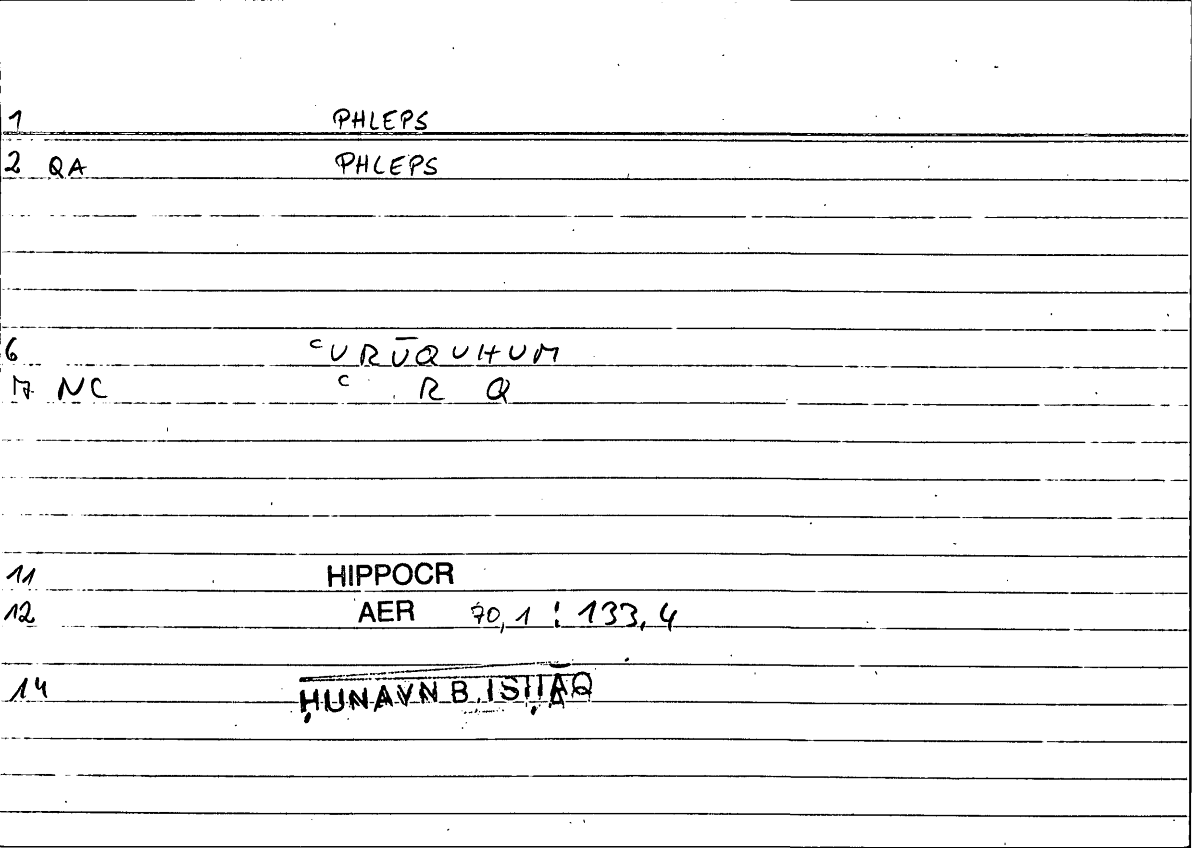 1 PHLEPS
2 QA PHLEPS
6 ᶜURŪQUHUM
7 NC ᶜ R Q
11 HIPPOCR
12 AER 70,1 : 133,4
14 ḤUNAYN B. ISḤĀQ